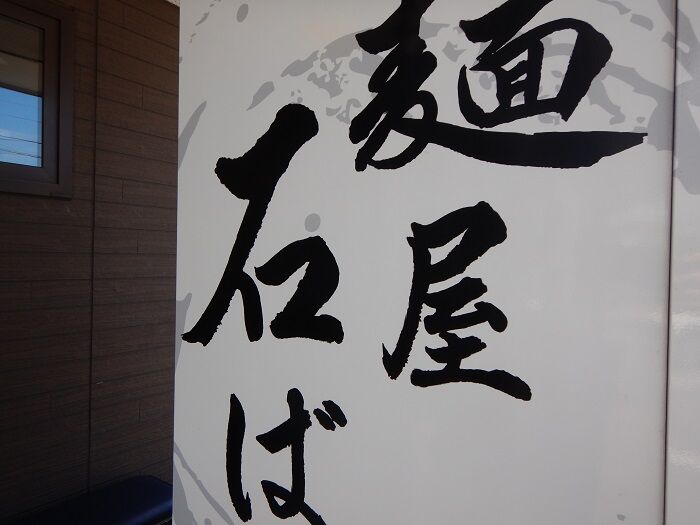 麺屋
石ば